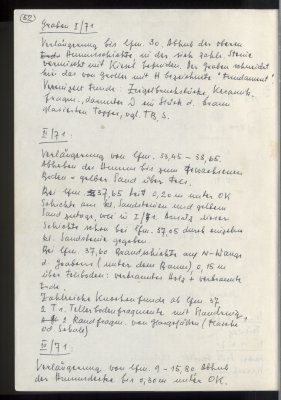 52
Graben I/71
Verlängerung bis lfm. 30. Abhub der oberen
Humusschichte, in der sich zahlr. Steine
vermischt mit Kiesel befinden. Der Graben schneidet
hier das von Groller mit H bezeichnete "Fundament".
Vereinzelt Funde: Ziegelbruchstücke, Keramik-
fragm., darunter 1 Stück d. braun
glasierten Topfes, vgl. TB 3.
II/71:
Verlängerung von lfm. 33,45 - 38,65.
Abheben des Humus bis zum gewachsenen
Boden = gelber Sand über Fels.
Bei lfm. 37,65 tritt 0,20 m unter OK
Schichte aus kl. Sandsteinen und gelbem
Sand zutage, wie in I/71. Ansatz dieser
Schichte schon bei lfm. 37.05 durch einzelne
kl. Sandsteine gegeben.
Bei lfm. 37,60 Brandschichte an N-Wange
d. Grabens (unter dem Baum), 0,15 m
über Felsboden: verbranntes Holz + verbrannte
Erde.
Zahlreiche Knochenfunde ab lfm. 37
2 T.S. Tellerbodenfragmente mit Standring,
2 Randfragm. von Glasgefäßen (Flasche
od. Schale)
III/71:
Verlängerung von lfm. 9 - 15,80. Abhub
der Humusdecke bis 0,30 m unter OK.